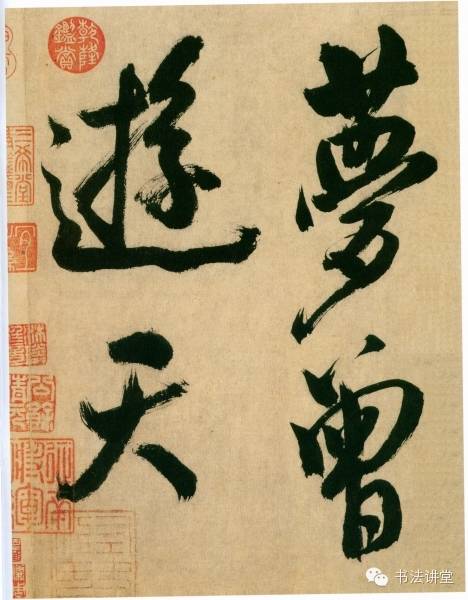 夢曾
遊天
乾隆鑑賞
三希堂
书法讲堂